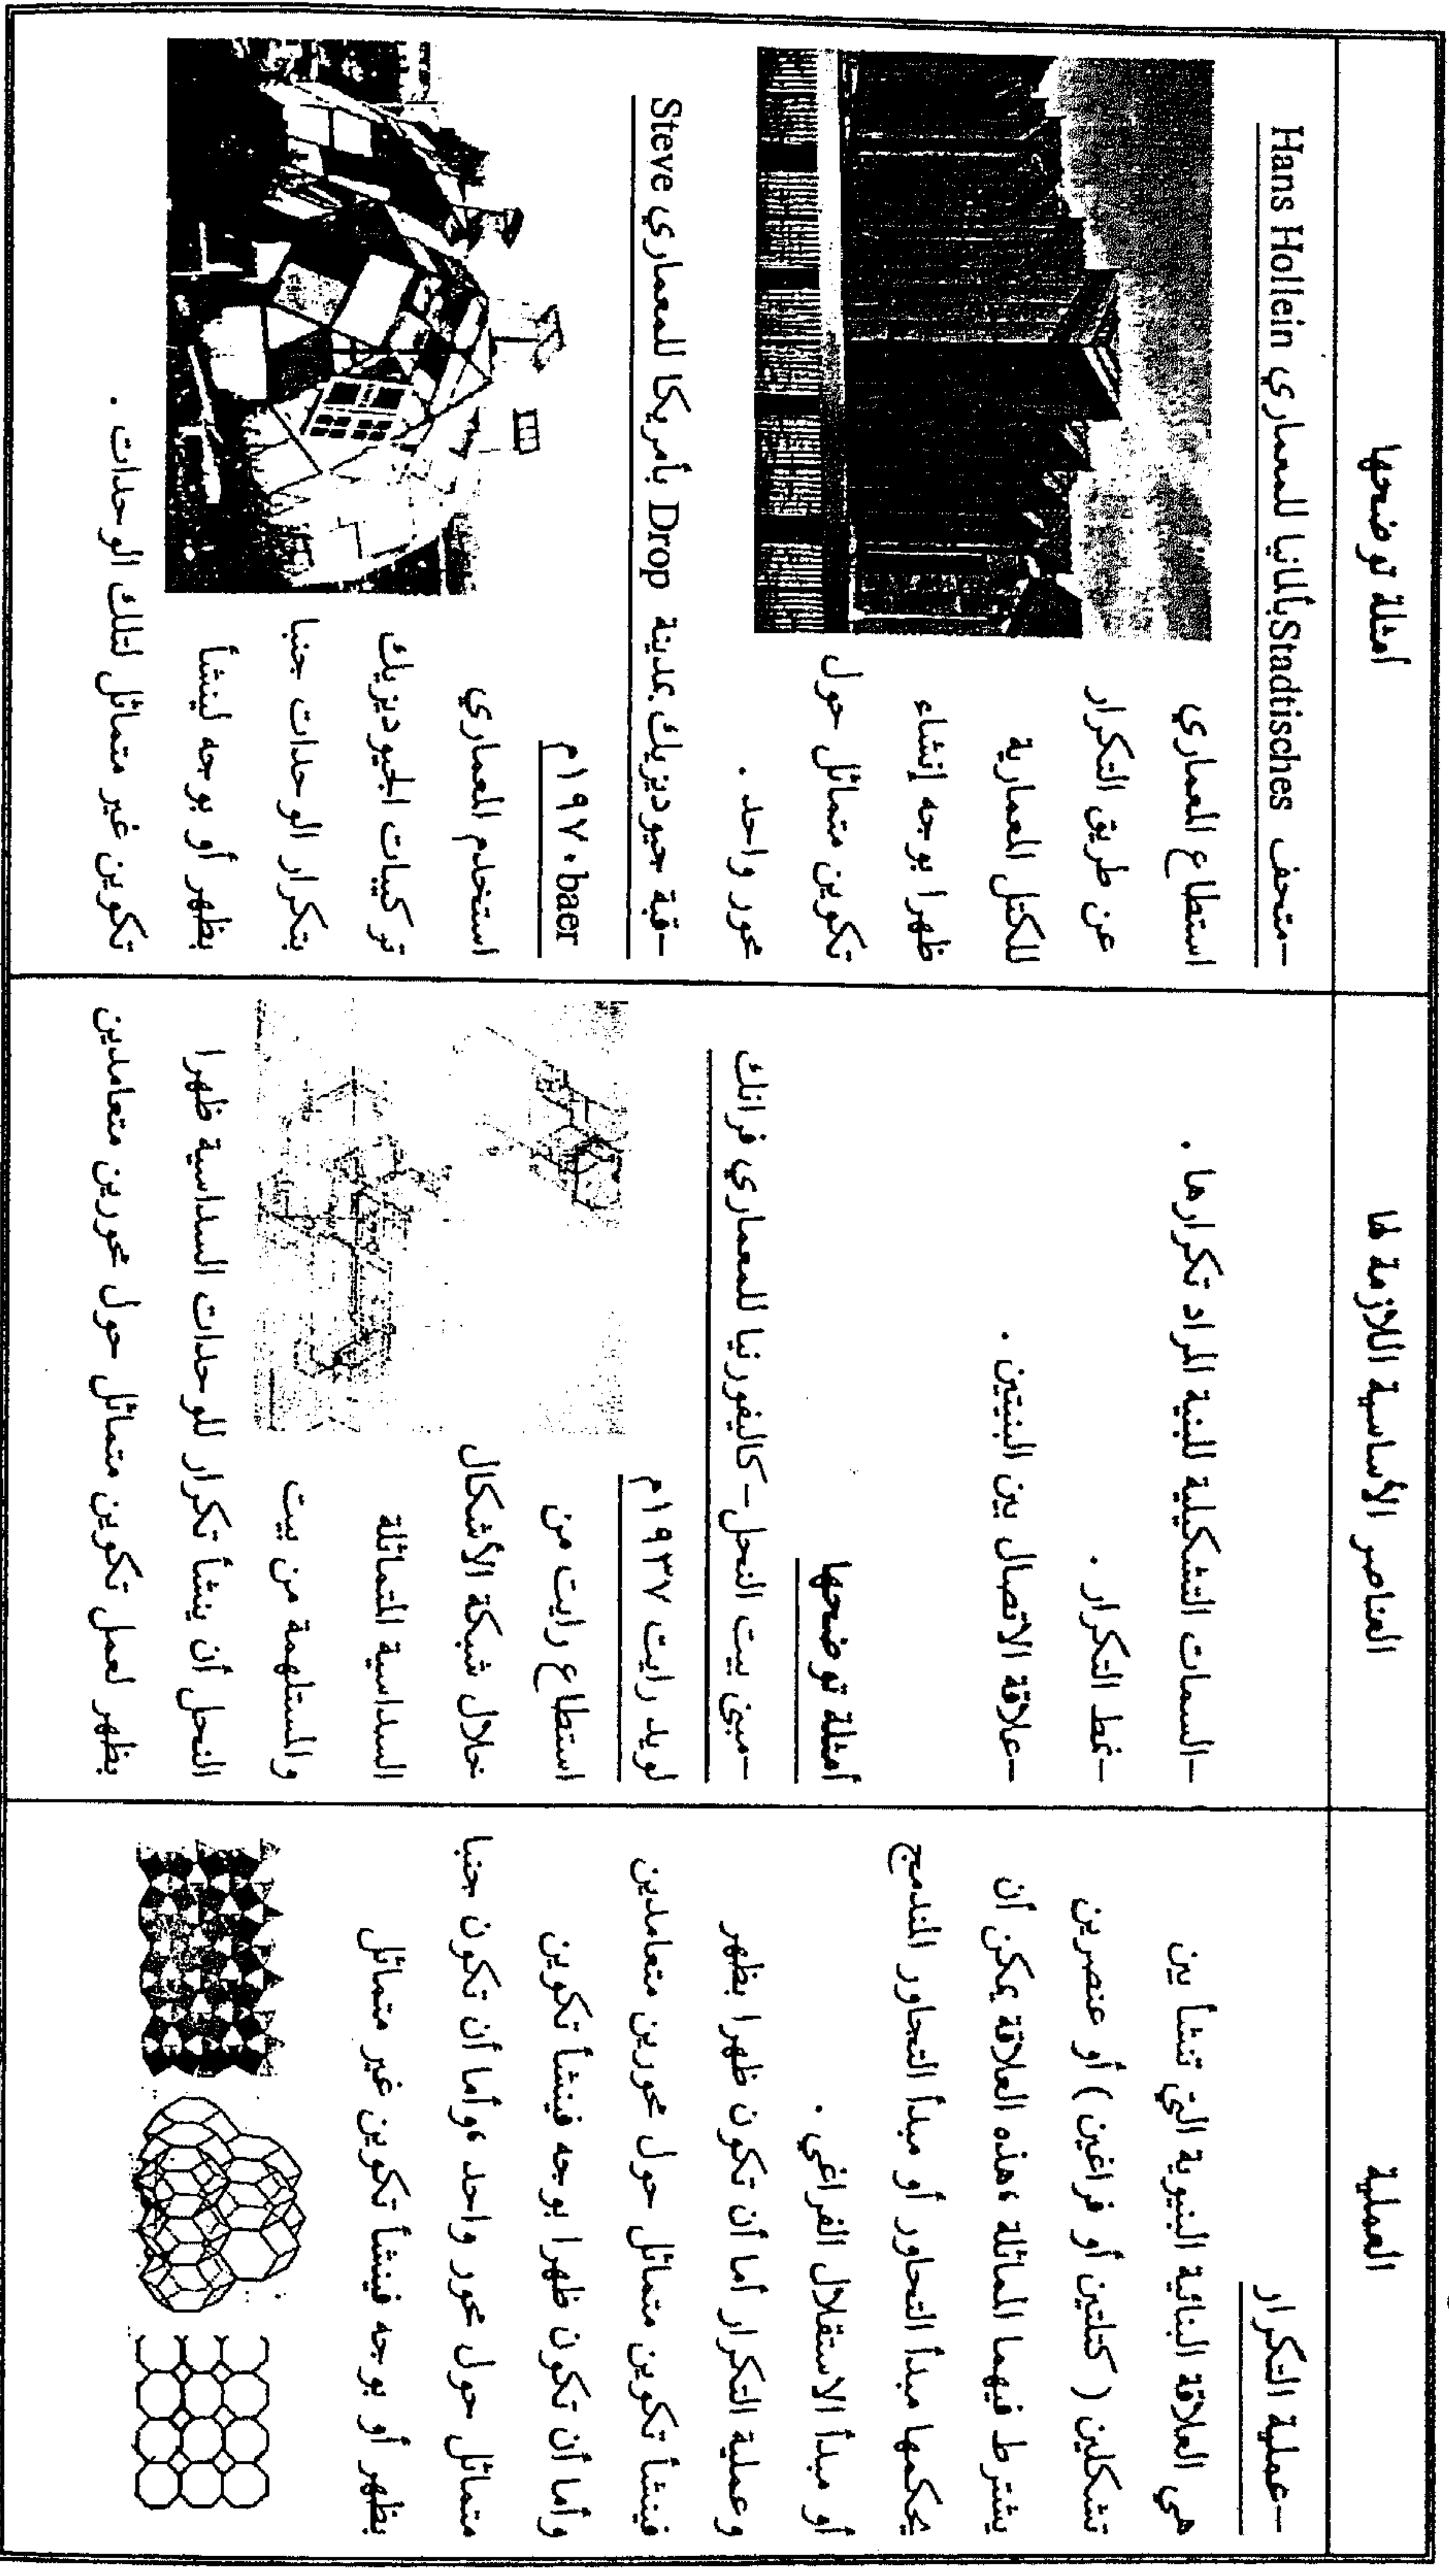 العملية
العناصر الأساسية اللازمة لها
أمثلة توضحها
-عملية التكرار
هي العلاقة البنائية البنيوية التي تنشأ بين
تشكلين ( كتلتين أو فراغين ) أو عنصرين
يشترط فيهما المماثلة ،هذه العلاقة يمكن أن
يحكمها مبدأ التحاور أو مبدأ التجاور المندمج
أو مبدأ الاستقلال الفراغي .
وعملية التكرار أما أن تكون ظهرا بظهر
فينشأ تكوين متماثل حول محورين متعامدين
وأما أن تكون ظهرا بوجه فينشأ تكوين
متماثل حول محور واحد ،وأما أن تكون جنبا
بظهر أو بوجه فينشأ تكوين غير متماثل
-السمات التشكيلية للبنية المراد تكرارها .
-نمط التكرار .
-علاقة الاتصال بين البنيتين .
أمثلة توضحها
-مبنى بيت النحل-كاليفورنيا للمعماري فرانك
لويد رايت ١٩٣٧م
استطاع رايت من
خلال شبكة الأشكال
السداسية المتماثلة
والمستلهمة من بيت
النحل أن ينشأ تكرار للوحدات السداسية ظهرا
بظهر لعمل تكوين متماثل حول محورين متعامدين
-متحف Stadtisches بألمانيا للمعماري Hans Hollein
استطاع المعماري
عن طريق التكرار
للكتل المعمارية
ظهرا بوجه إنشاء
تكوين متماثل حول
محور واحد .
-قبة جيوديزيك بمدينة Drop بأمريكا للمعماري Steve
baer ١٩٧٠م
استخدم المعماري
تركيبات الجيوديزيك
بتكرار الوحدات جنبا
بظهر أو بوجه لينشأ
تكوين غير متماثل لتلك الوحدات .